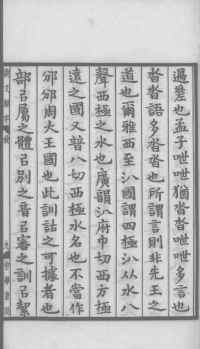 遏蹵也孟子呭呭猶沓沓呭呭多言也
沓沓語多沓沓也所謂言則非先王之
道也爾雅西至汃國謂四極汃从水八
聲西極之水也廣韻汃府巾切西方極
遠之國又普八切西極水名也不當作
邠邠周大王國也此訓詁之可據者也
部㠯屬之體㠯別之音㠯審之訓㠯絜